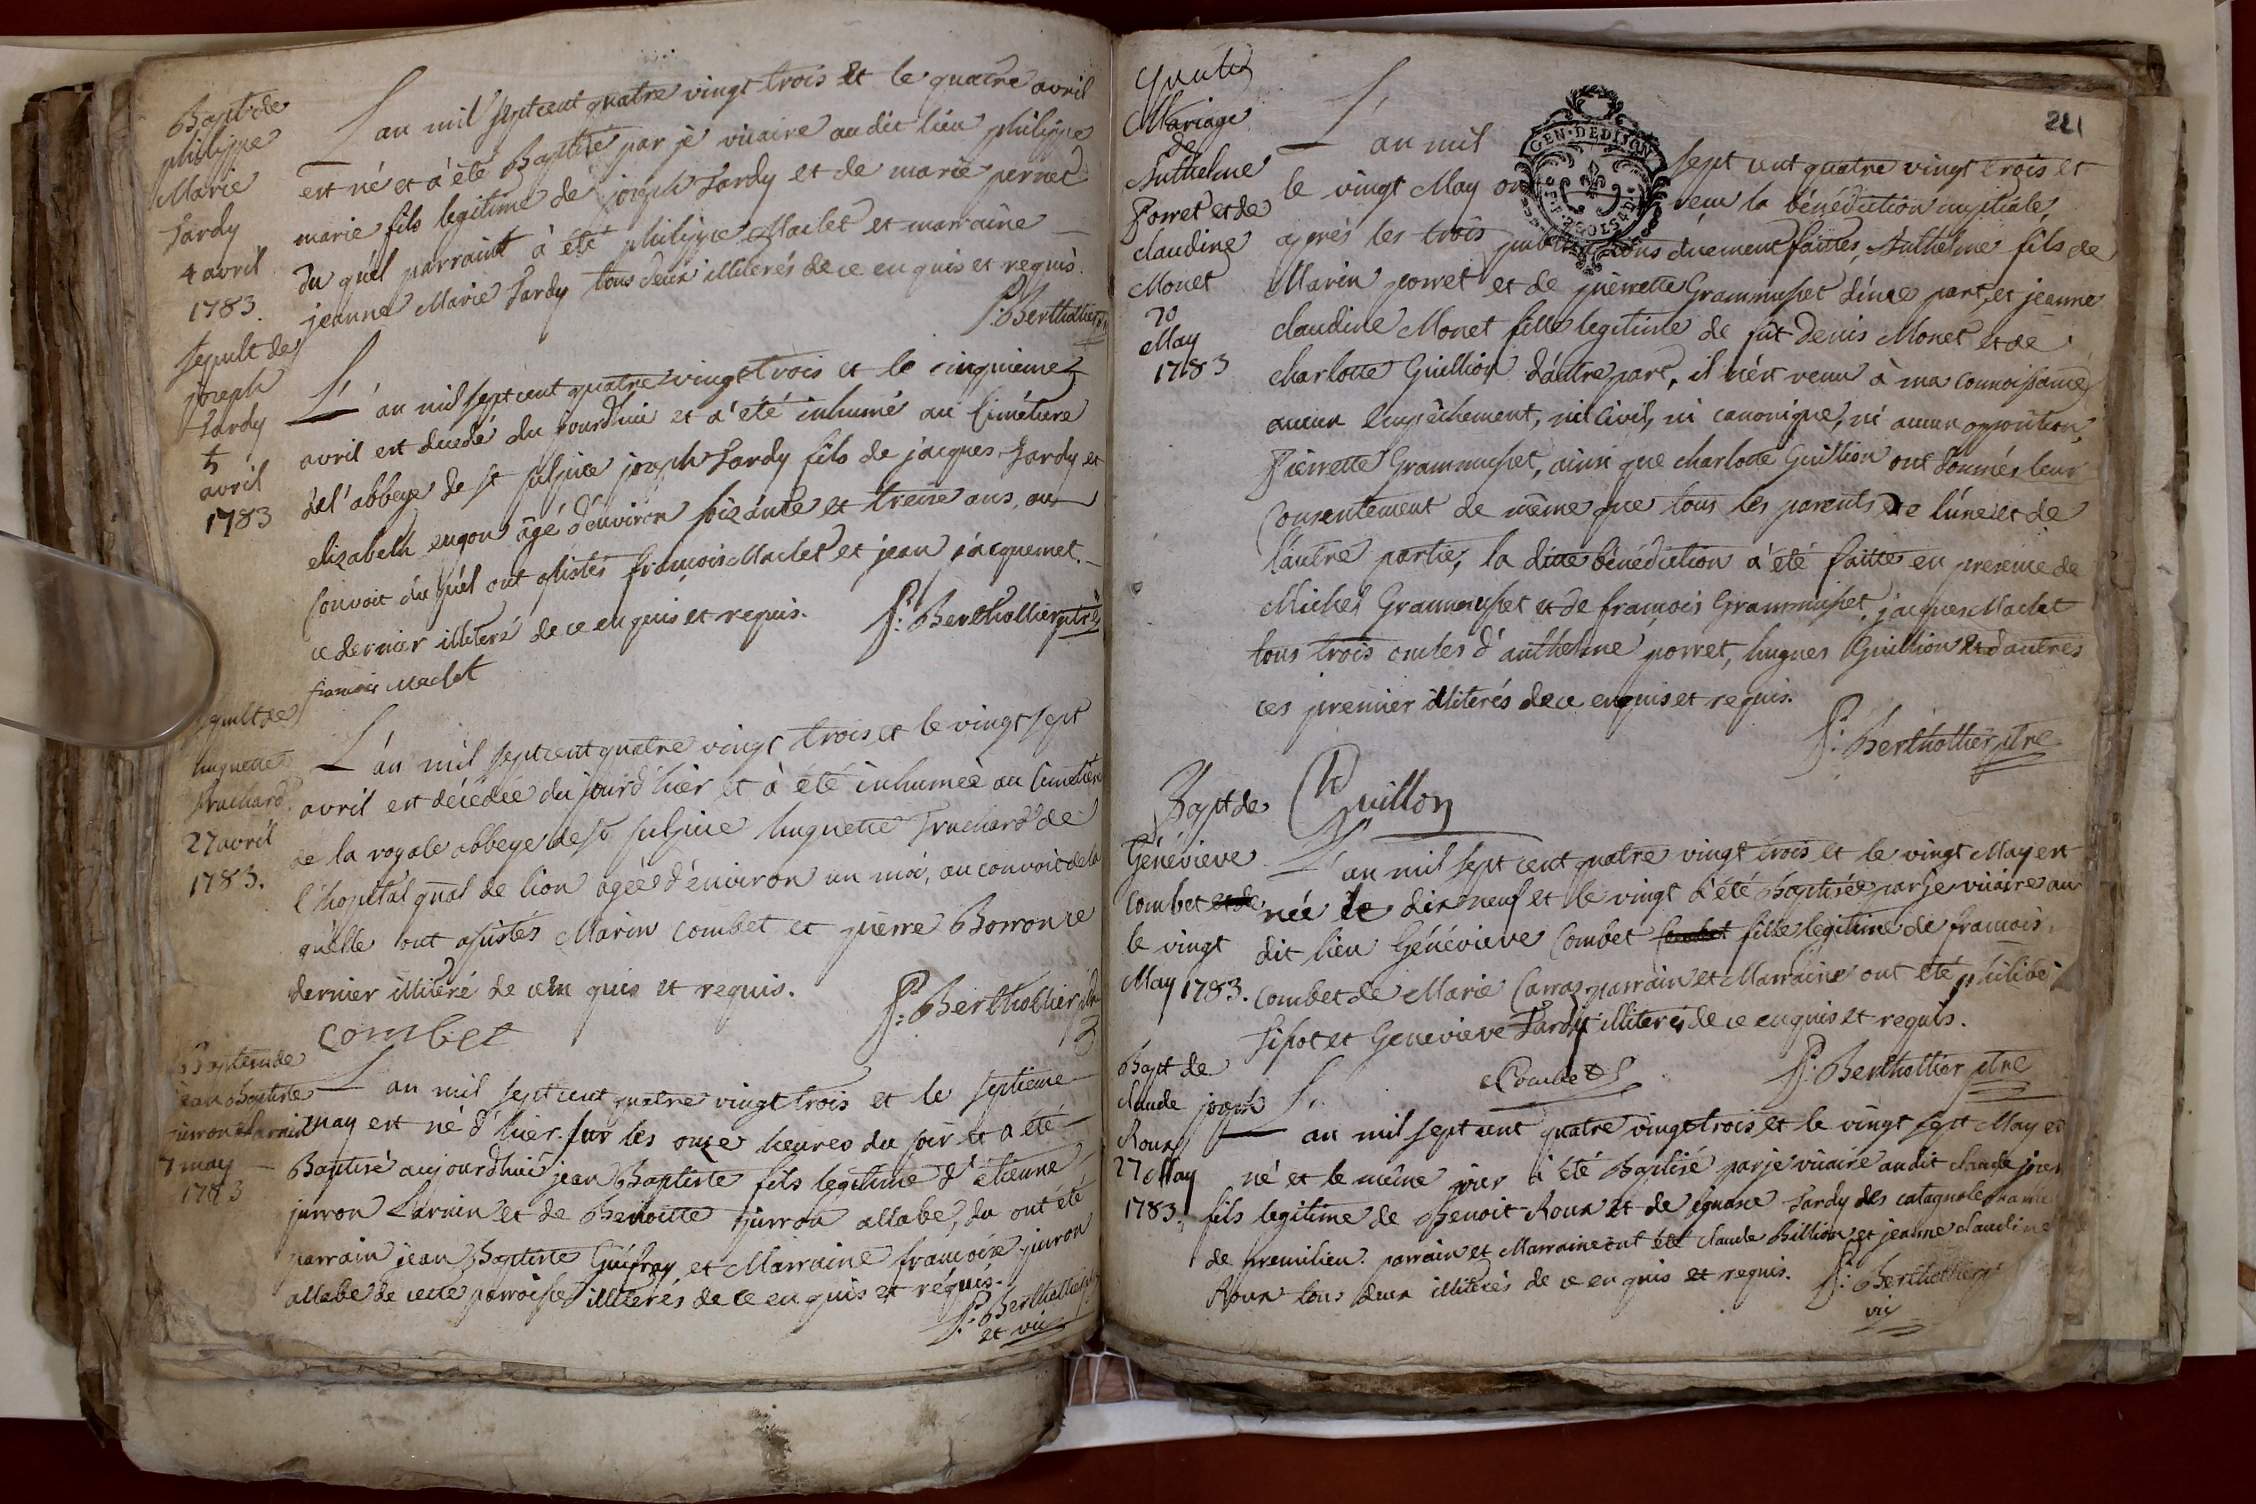 Bapt de
philippe
Marie
Tardy
4 avril
1783.
L'an mil sept cent quatre vingt trois et le quatre avril
est né et à été Baptisé par je vicaire audit lieu philippe
marie fils legitime de joseph Tardy et de marie pernet
du quel parraint à été philippe Maclet et marraine
jeanne Marie Tardy tous deux illiterés de ce enquis et requis.
P: Berthollier
sepult de
joseph
Tardy
5
avril
1783
L'an mil sept cent quatre vingt trois et le cinquieme
avril est decedé du jourd'hui et a été inhumé au Cimétiere
de l'abbeye de st sulpice joseph Tardy fils de jacques Tardy et
elizabeth eugon âgé d'environ soizánte et treize ans, au
Convoit du quel ont assistés françois Maclet et jean jacquemet.
ce dernier illiteré de ce enquis et requis. P: Berthollier ptre
françois Maclet
sepult de
huguette
Truchard
27 avril
1783.
L'an mil sept cent quatre vingt trois et le vingt sept
avril est décédée du jourd'hier et à été inhumée au Cimetière
de la royale abbeye de st sulpice huguette Truchard de
l'hopital gnal de lion agée d'environ un moi, au convoit de la
quelle ont assistés Marin Combet et pierre Borron ce
dernier illiteré de ce en quis et requis. P: Berthollier ptre
combet
Baptem de
jean Baptiste
jurron Larnin
7 may
1783
L'an mil sept cent quatre vingt trois et le septieme
may est né d'hier sur les onze heures du soir et a été
Baptisé aujourdhui jean Baptiste fils legitime d'etienne
jurron Larnin et de Benoitte jurron allabe, du ont été
parrain jean Baptiste Guifray et Marraine françoise jurron
allabe de cette parroisse illiterés de ce enquis et réquis.
P: Berthollier
et vic
221
GEN. DE DIJON
Mariage
de
Anthelme
Porret et de
claudine
Monet
20
May
1783
L'an mil sept cent quatre vingt trois et
le vingt May ont reçu la bénédiction nuptiale,
après les trois publications duement faittes, Anthelme fils de
Marin porret et de pierrette Grammusset d'une part, et jeanne
claudine Monet fille legitime de fût Denis Monet et de
charlotte Guillion d'autre part, il n'est venu à ma connoissance
aucun empêchement, ni Civil, ni canonique, ni aucun opposition,
Pierrette Grammusset, ainsi que charlotte Guillion ont donnés leur
Consentement de même que tous les parents de l'une et de
l'autre partie, la ditte bénédiction à été faitte en presence de
Michel Grammusset et de françois Grammusset, jacques Maclet
tous trois oncles d'anthelme porret, hugues Guillion et d'autres
ces premier illiterés de ce enquis et requis.
P: Berthollier ptre
Guillon
Bapt de
Généviève
Combet et de
le vingt
May 1783.
L'an mil sept cent quatre vingt trois et le vingt May est
née le dix neuf et le vingt à été Baptisée par je vicaire au
dit lieu Généviève Combet Combet fille legitime de françois
Combet de Marie Carraz parrain et Marraine ont été philibe
Tissot et Genevieve Tardy illiterés de ce enquis et requis.
Combet P: Berthollier ptre
Bapt de
claude joseph
Roux
27 May
1783.
L'an mil sept cent quatre vingt trois et le vingt sept May est
né et le même jour à été Baptisé par je vicaire audit claude joseph
fils legitime de Benoit Roux et de ignace Tardy des catagnole
de premilieu. parrain et Marraine ont été claude Billion et jeanne claudine
Roux tous deux illiterés de ce en quis et requis. P: Berthollier
vic